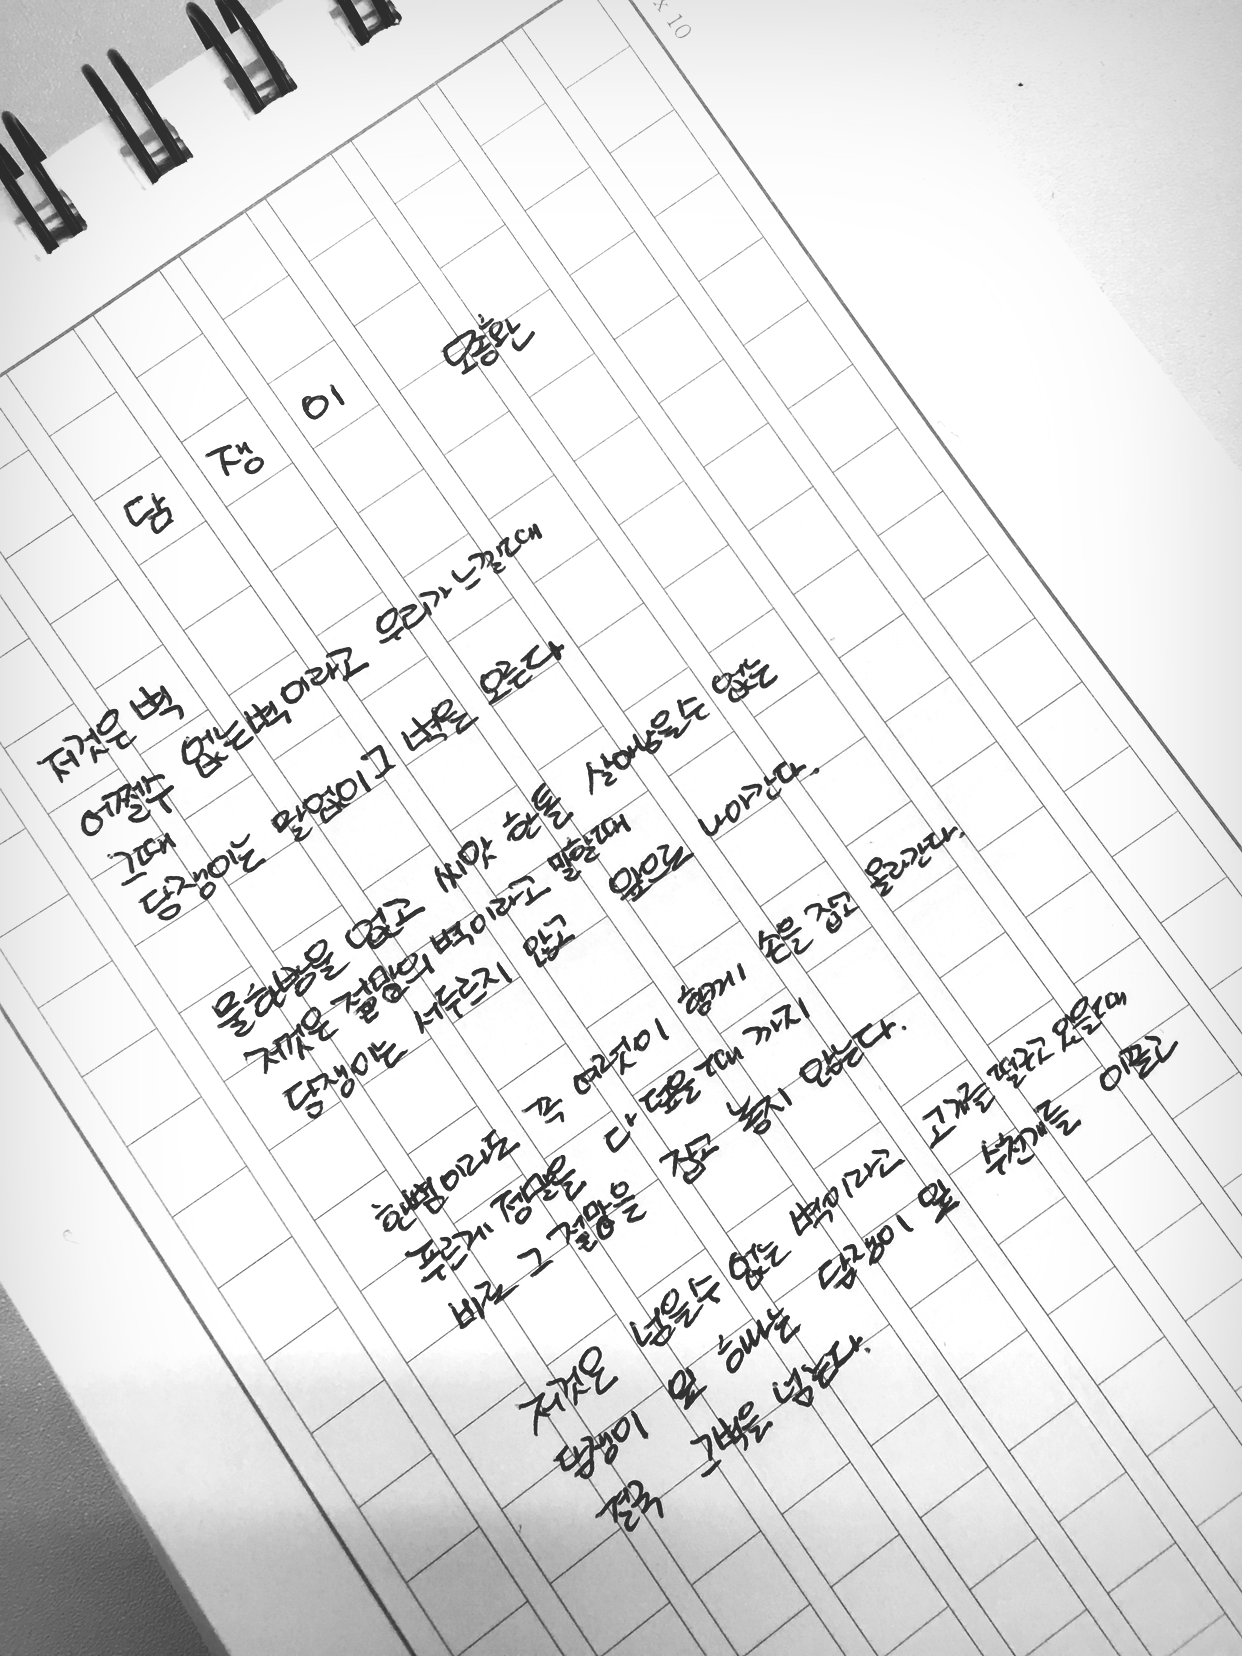 x 10
담 쟁 이 도종환
저것은 벽
어쩔수 없는벽이라고 우리가 느낄때
그때
담쟁이는 말없이 그 벽을 오른다
물한방울 없고 씨앗 한톨 살아남을수 없는
저것은 절망의 벽이라고 말할때
담쟁이는 서두르지 않고 앞으로 나아간다.
한뼘이라도 꼭 여럿이 함께 손을 잡고 올라간다.
푸르게 절망을 다 덮을때 까지
바로 그 절망을 잡고 놓지 않는다.
저것은 넘을수 없는 벽이라고 고개를 떨구고 있을때
담쟁이 잎 하나는 담쟁이 잎 수천개를 이끌고
결국 그벽을 넘는다.